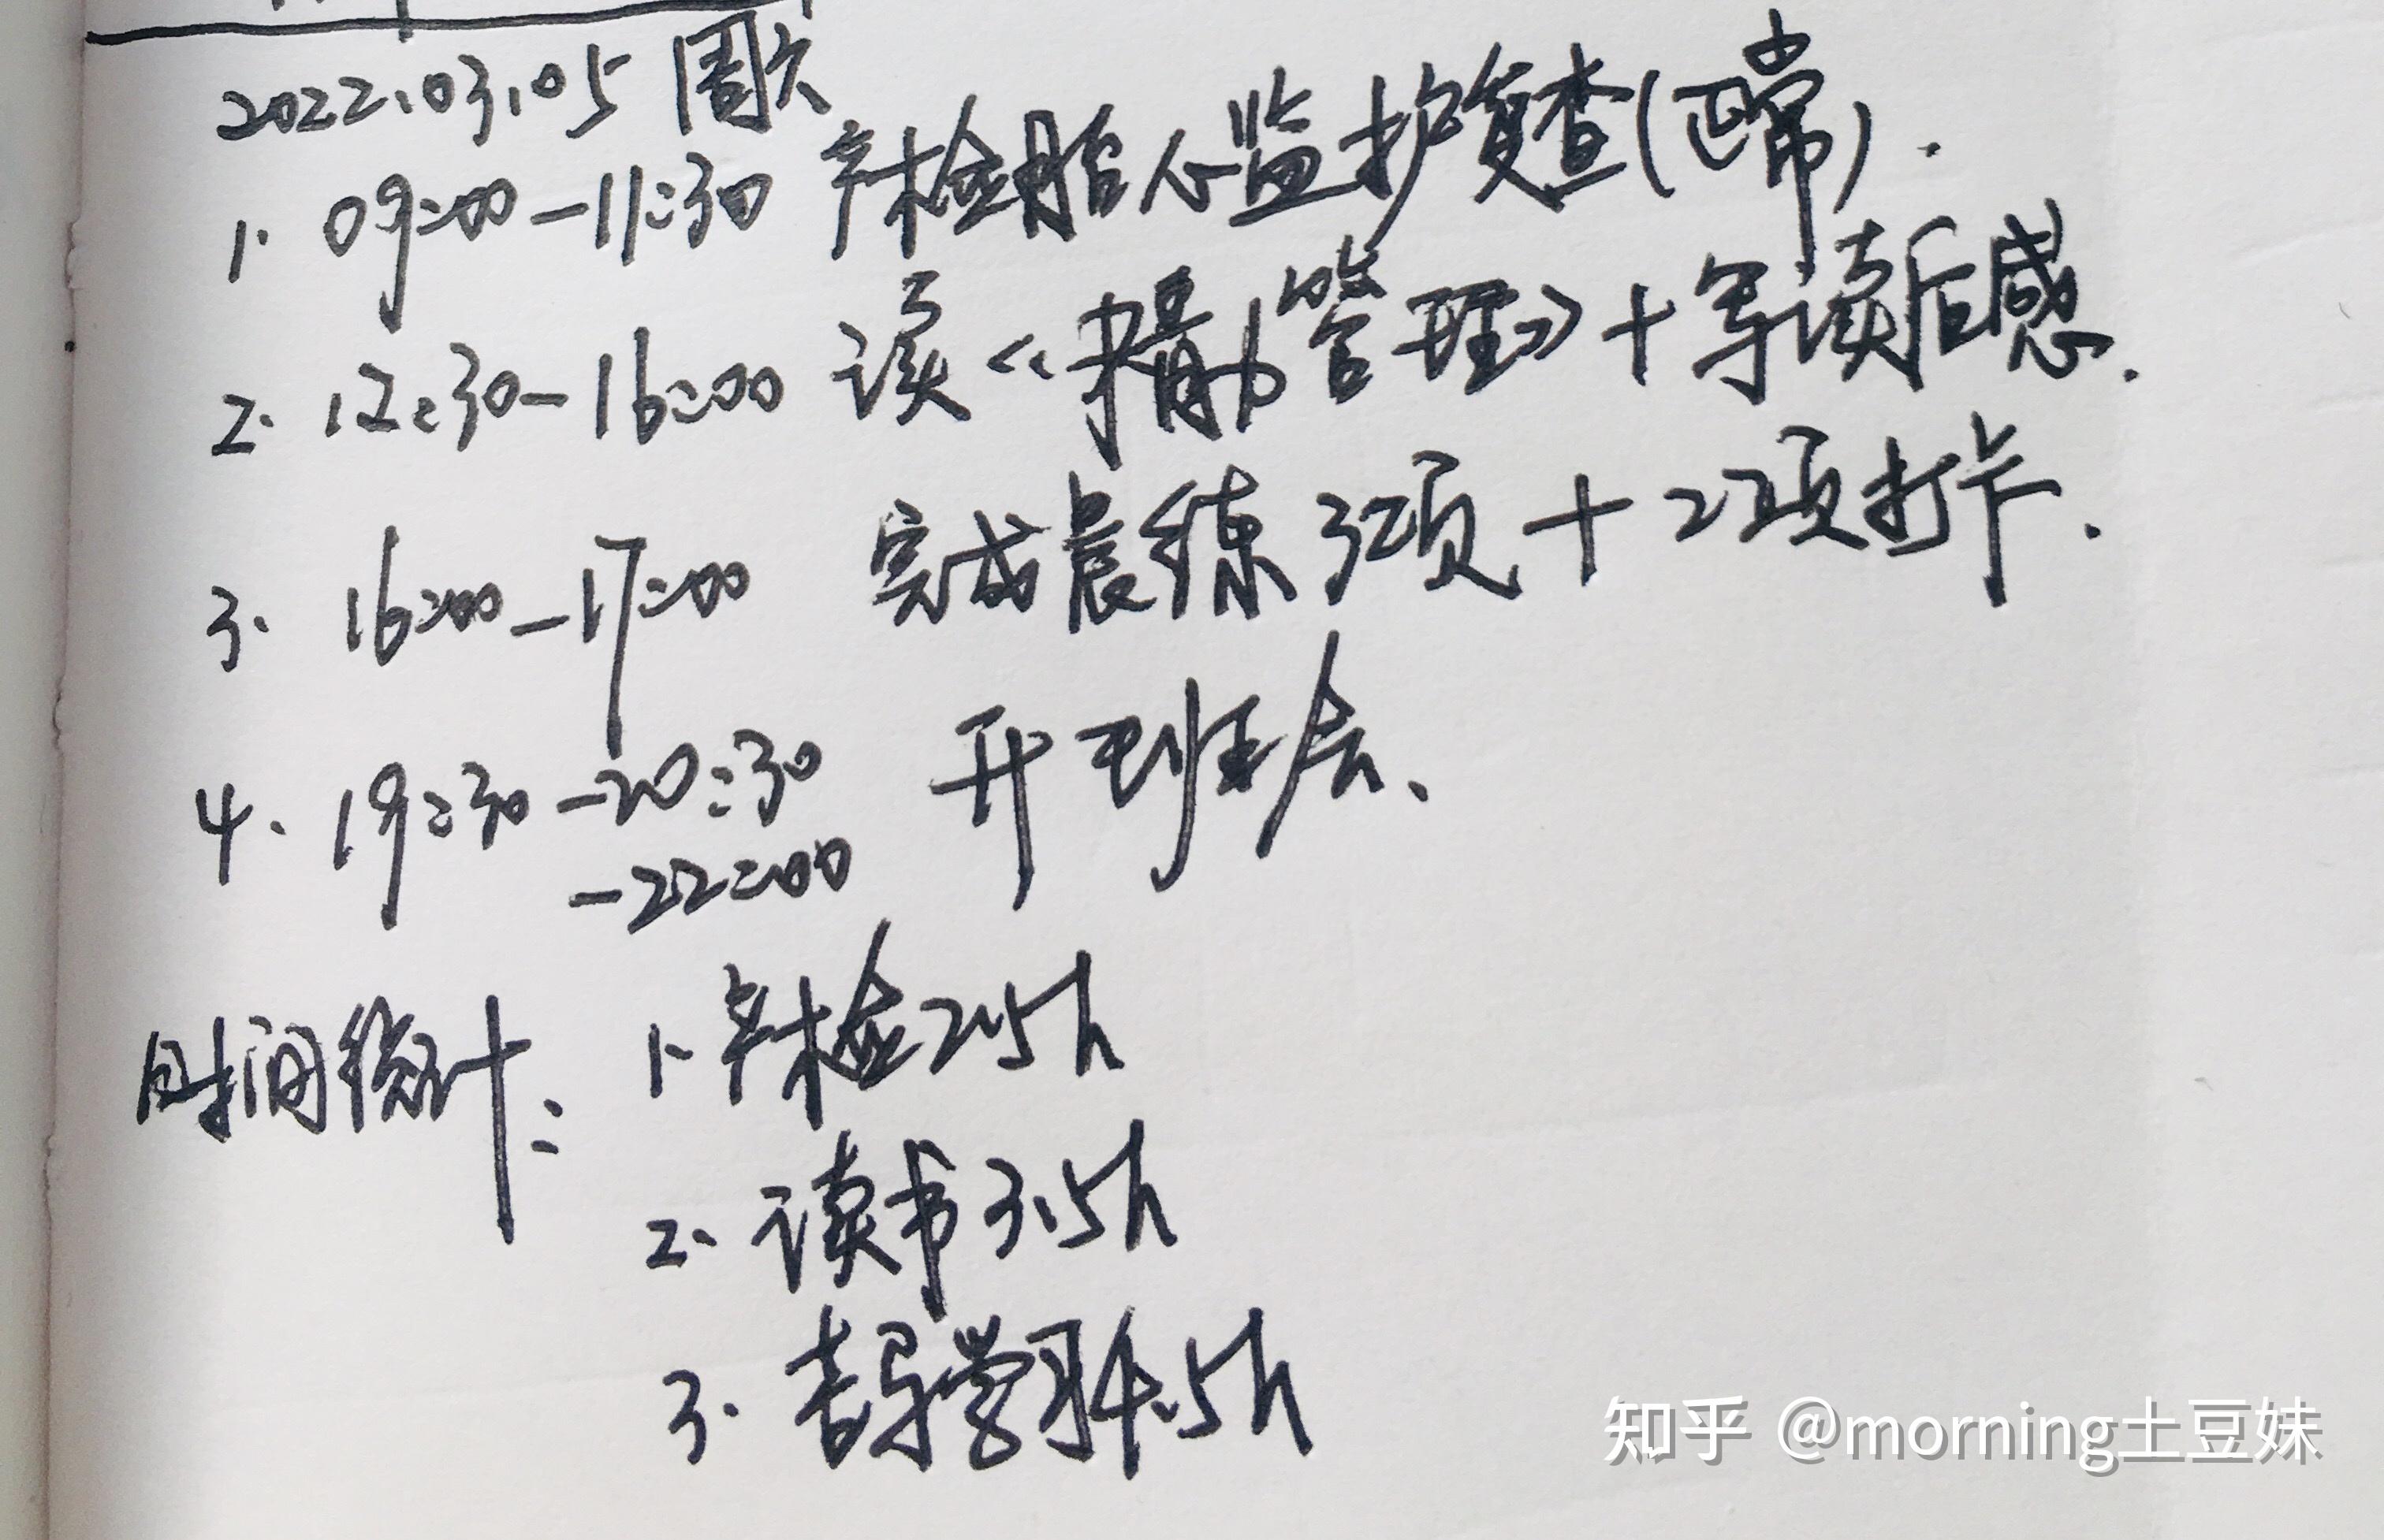 2022.03.05 周六
1. 09:00-11:30 产检胎心监护复查(正常).
2. 12:30-16:00 读《精力管理》+写读后感.
3. 16:00-17:00 完成晨练3项+2项打卡.
4. 19:30-20:30 开班会.
-22:00
时间统计: 1.产检2.5h
2. 读书3.5h
3. 学习4.5h
知乎 @morning土豆妹